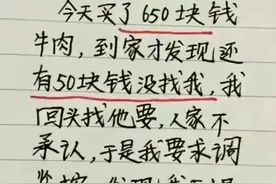 今天买了650块钱
牛肉，到家才发现还
有50块钱没找我，我
回头找他要，人家不
承认，于是我要求调